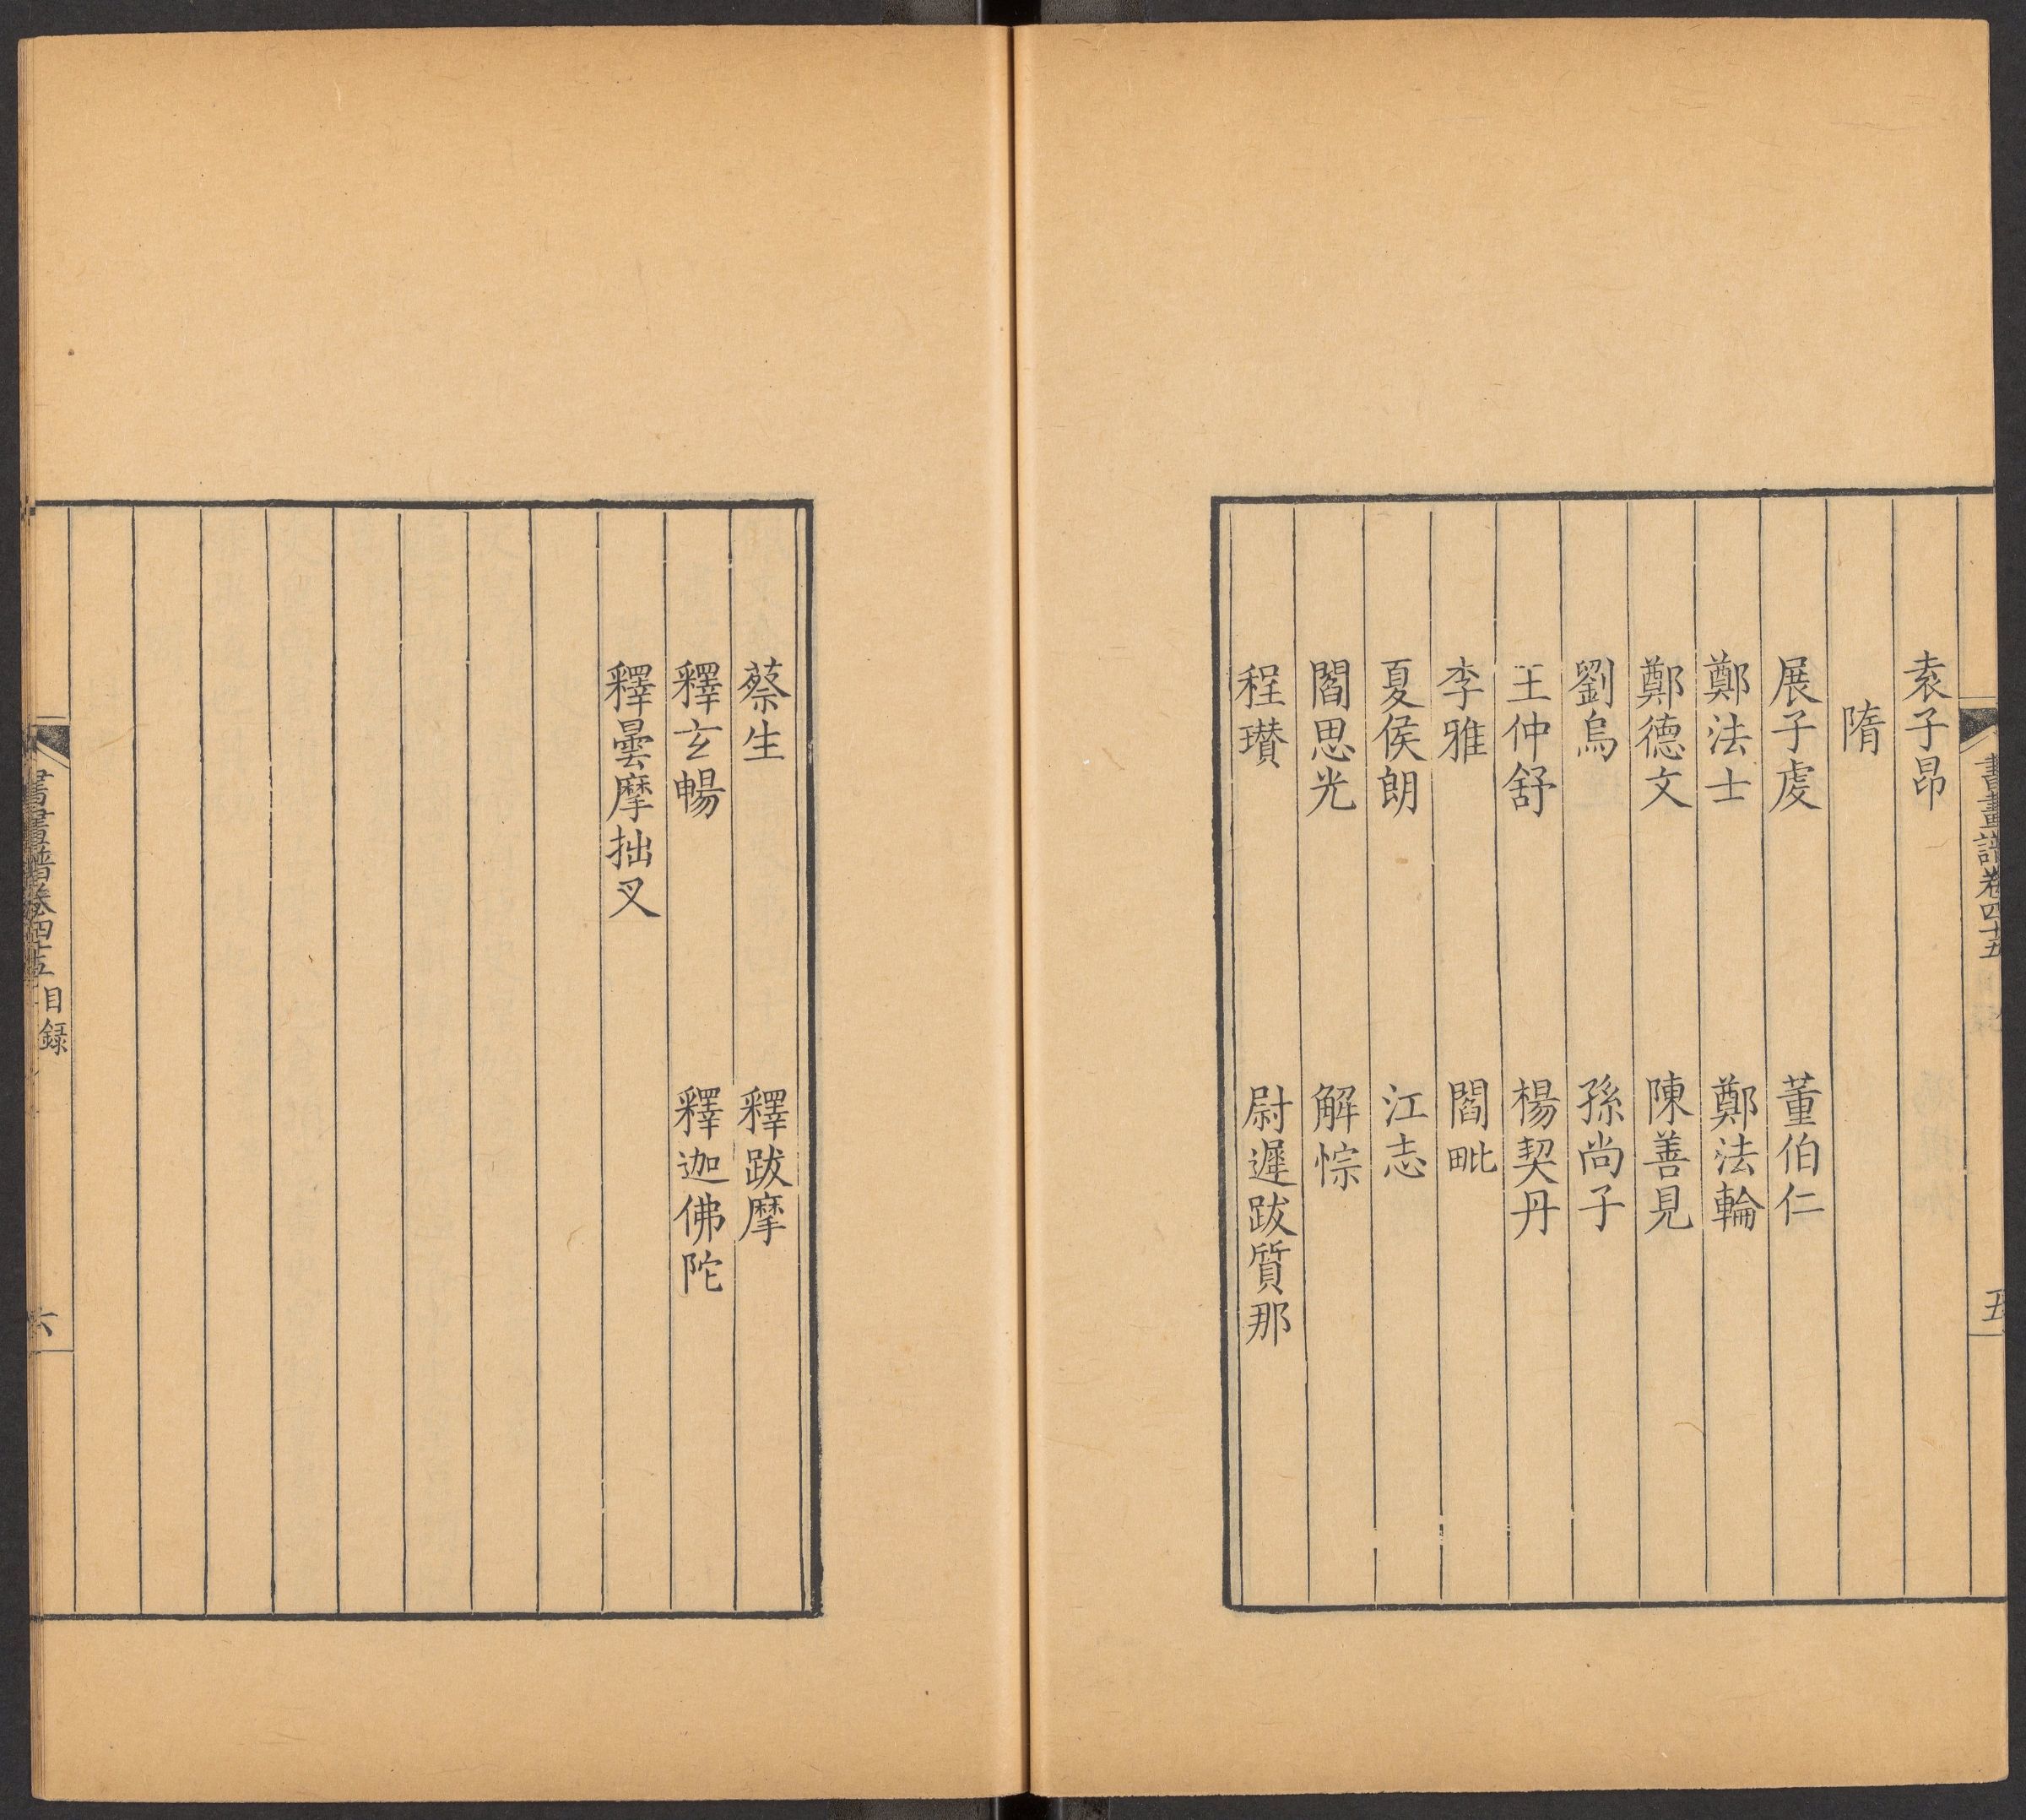 書畫譜卷四十五
五
袁子昂
隋
展子虔 董伯仁
鄭法士 鄭法輪
鄭德文 陳善見
劉烏 孫尚子
王仲舒 楊契丹
李雅 閻毗
夏侯朗 江志
閻思光 解悰
程瓚 尉遲跋質那
蔡生 釋跋摩
釋玄暢 釋迦佛陀
釋曇摩拙叉
書畫譜卷四十五 目録
六